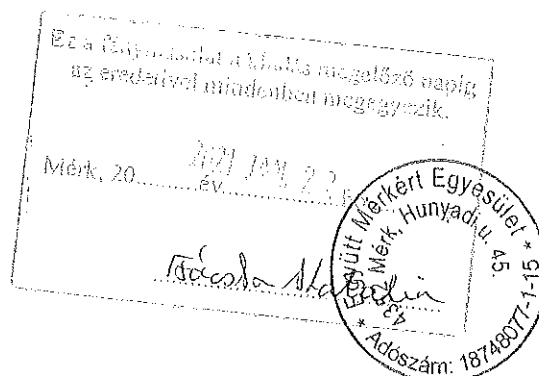 Ez a fénymásolat a kiadás megelőző napig
az eredetivel mindenben megegyezik.
Mérk, 20......... év
2021 JAN. 22.
* Együtt Mérkért Egyesület *
4352 Mérk, Hunyadi u. 45.
Adószám: 18748077-1-15